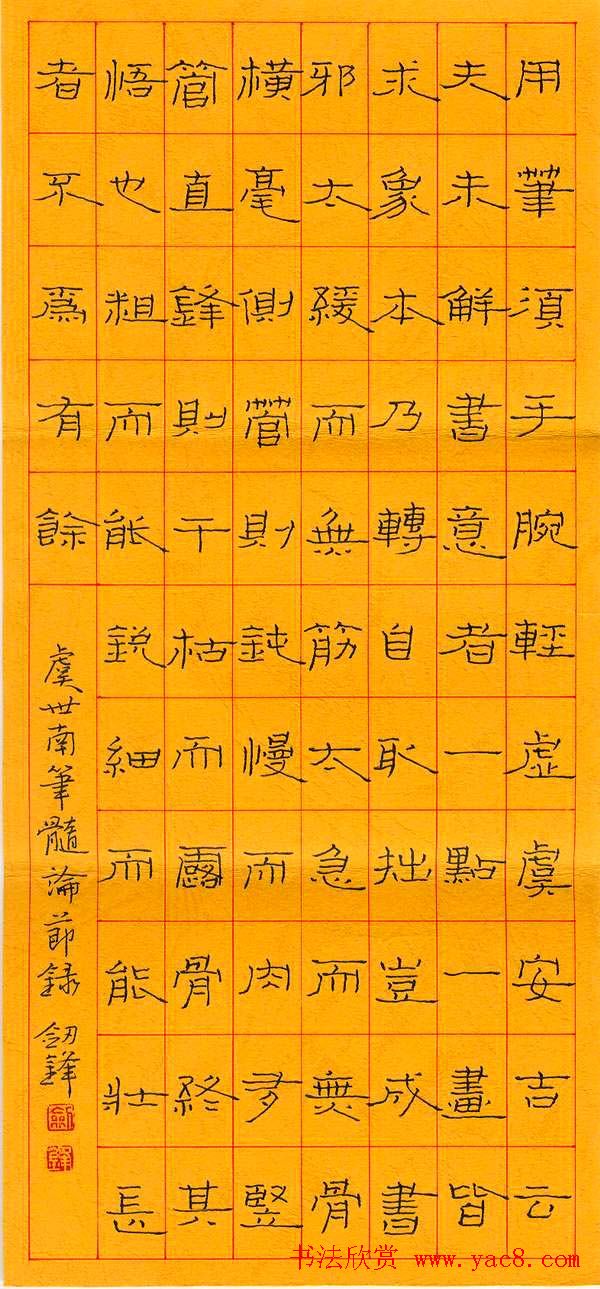 用筆須手腕輕虛虞安吉云
夫未解書意者一點一畫皆
求象本乃轉自取拙豈成書
邪太緩而無筋太急而無骨
橫毫側管則鈍慢而肉多豎
管直鋒則干枯而露骨終其
悟也粗而能銳細而能壯長
者不為有餘
虞世南筆髓論節錄 劒鋒
劍
鋒
书法欣赏 www.yac8.com